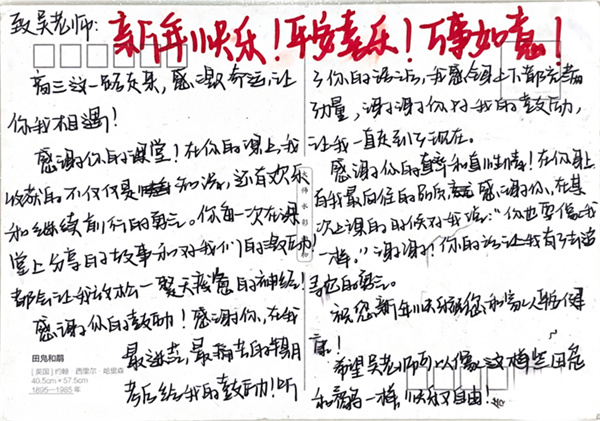 致吴老师：
新年快乐！平安喜乐！万事如意！
高三这一路走来，感谢命运让
你我相遇！
感谢你的课堂！在你的课上，我
收获的不仅仅是知识，还有欢乐
和继续前行的勇气。你每一次在课
堂上分享的故事和对我们的鼓励
都会让我放松一整天紧绷的神经！
感谢你的鼓励！感谢你，在我
最迷茫，最痛苦的期
考后给我的鼓励！听
了你的话后，我感觉身上下都充满
力量，谢谢你对我的鼓励，
让我一直走到了现在。
感谢你的真率和真性情！在你身上
有我最向往的感谢你，在某
次上课的时候对我说：“你也要像我
一样。”谢谢！你的话让我有了
的勇气。
祝您新年快乐祝您和家人平安健
康！
希望吴老师可以像这样些田凫
和一样，快乐自由！
大师水彩
田凫和鹬
[英国]约翰·西里尔·哈里森
40.5cm×57.5cm
1895—1985年